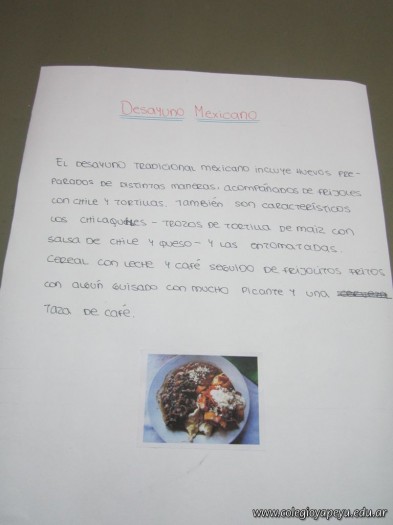 Desayuno Mexicano
El desayuno tradicional mexicano incluye huevos pre-
parados de distintas maneras, acompañados de frijoles
con chile y tortillas. También son característicos
los chilaquiles - trozos de tortilla de maíz con
salsa de chile y queso - y las entomatadas.
Cereal con leche y café seguido de frijolitos fritos
con algún guisado con mucho picante y una
taza de café.
www.colegioyapeyu.edu.ar